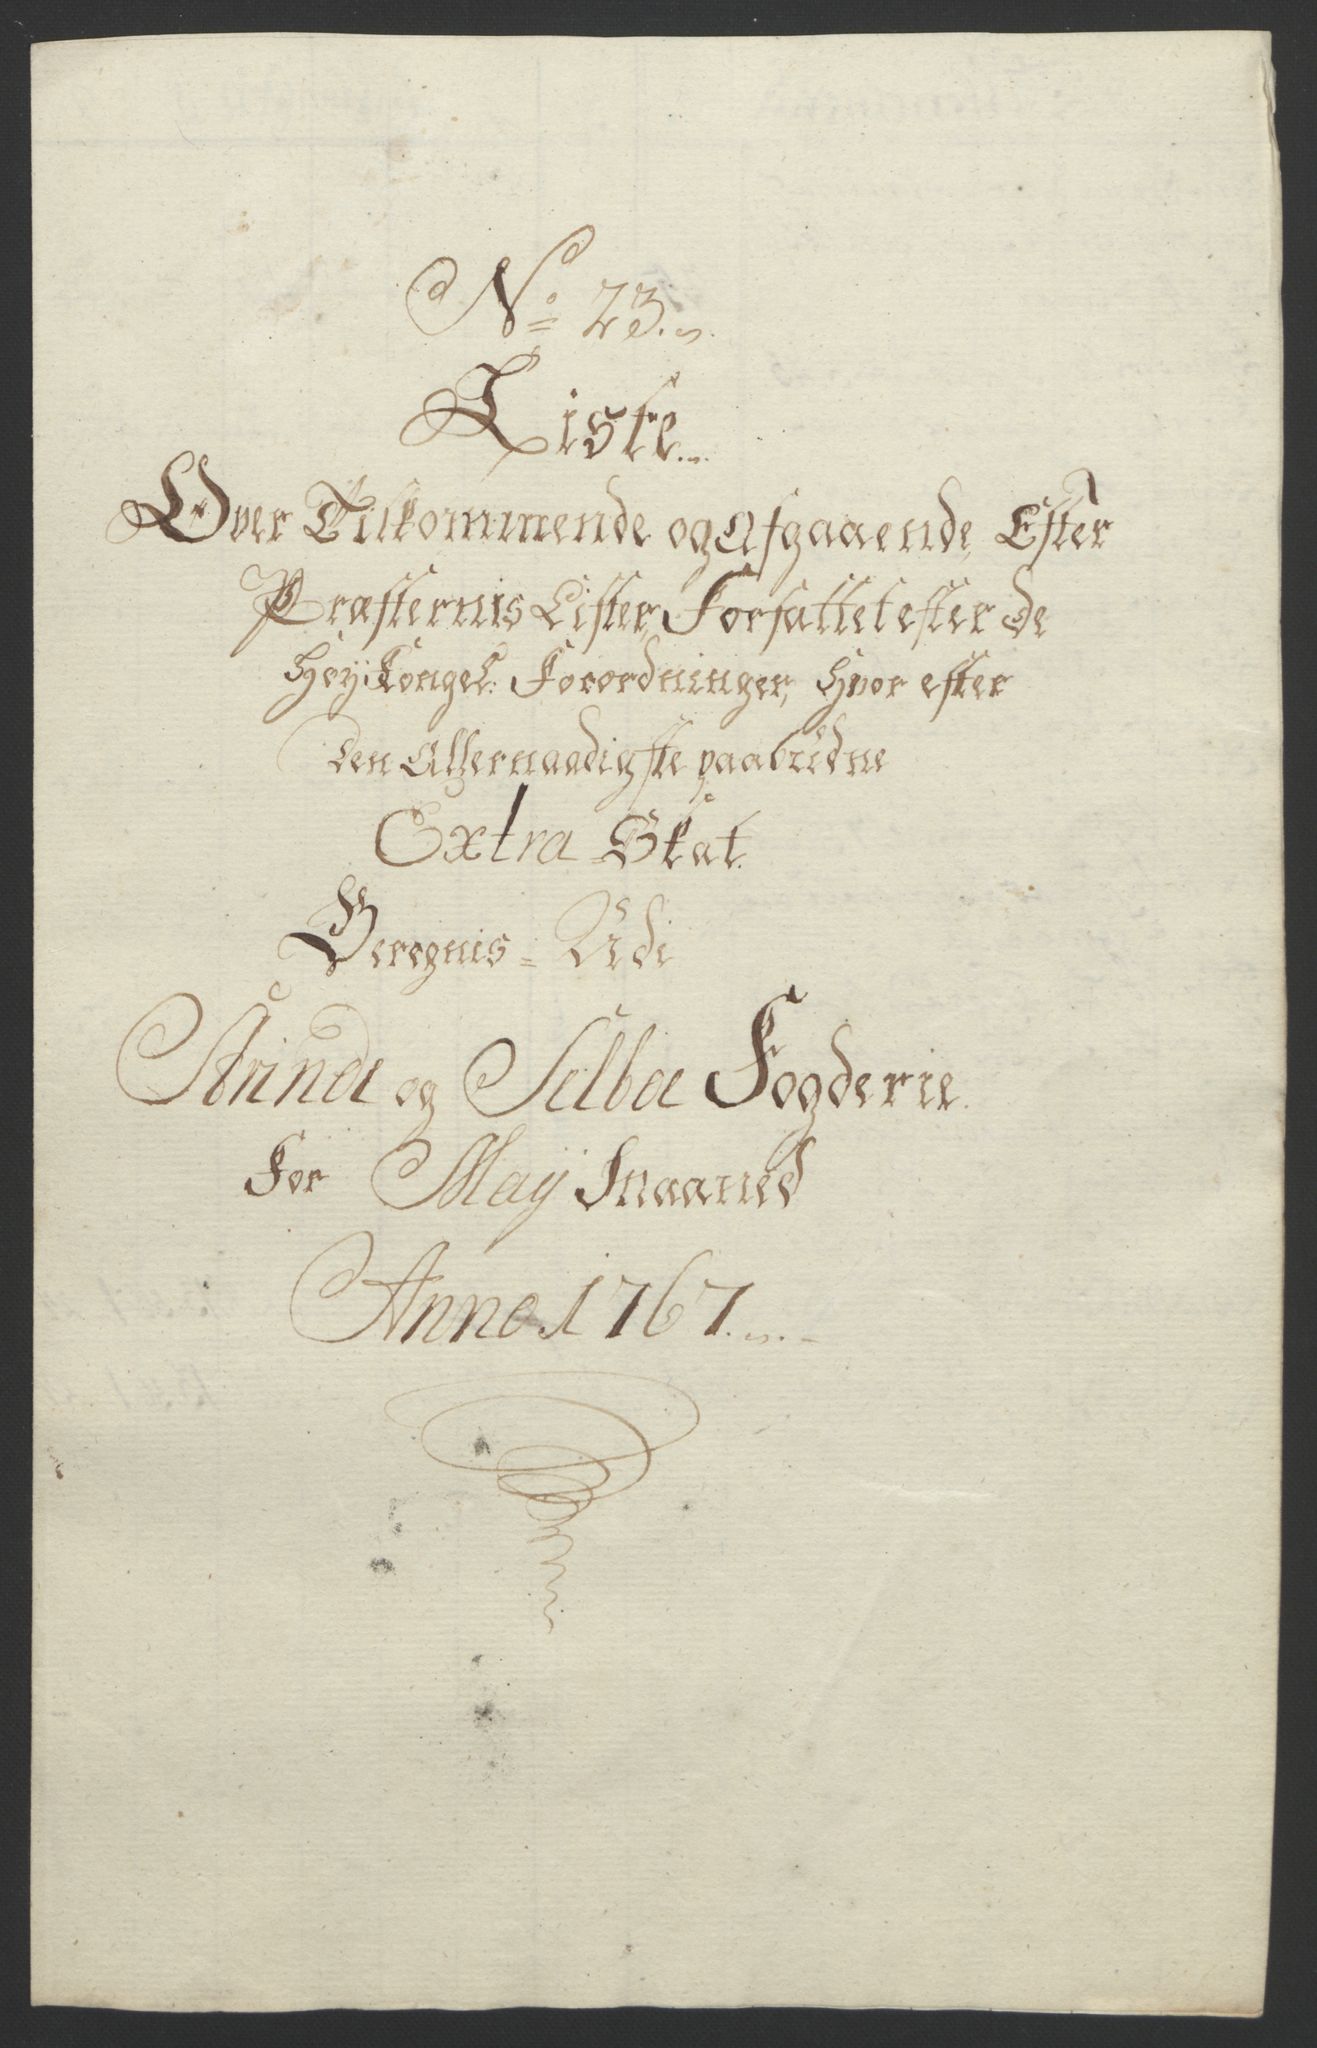 No 23.
Liste
Over Tilkommende og Afgaaende, Efter
Præsternis Lister, Forfattet efter de
Høy: Kongel: Forordninger, Hvor efter
den Allernaadigste paabudne
Extra Skat
Beregnis = Udi
Strinda og Selboe Fogderie.
For May Maaned
Anno 1767.